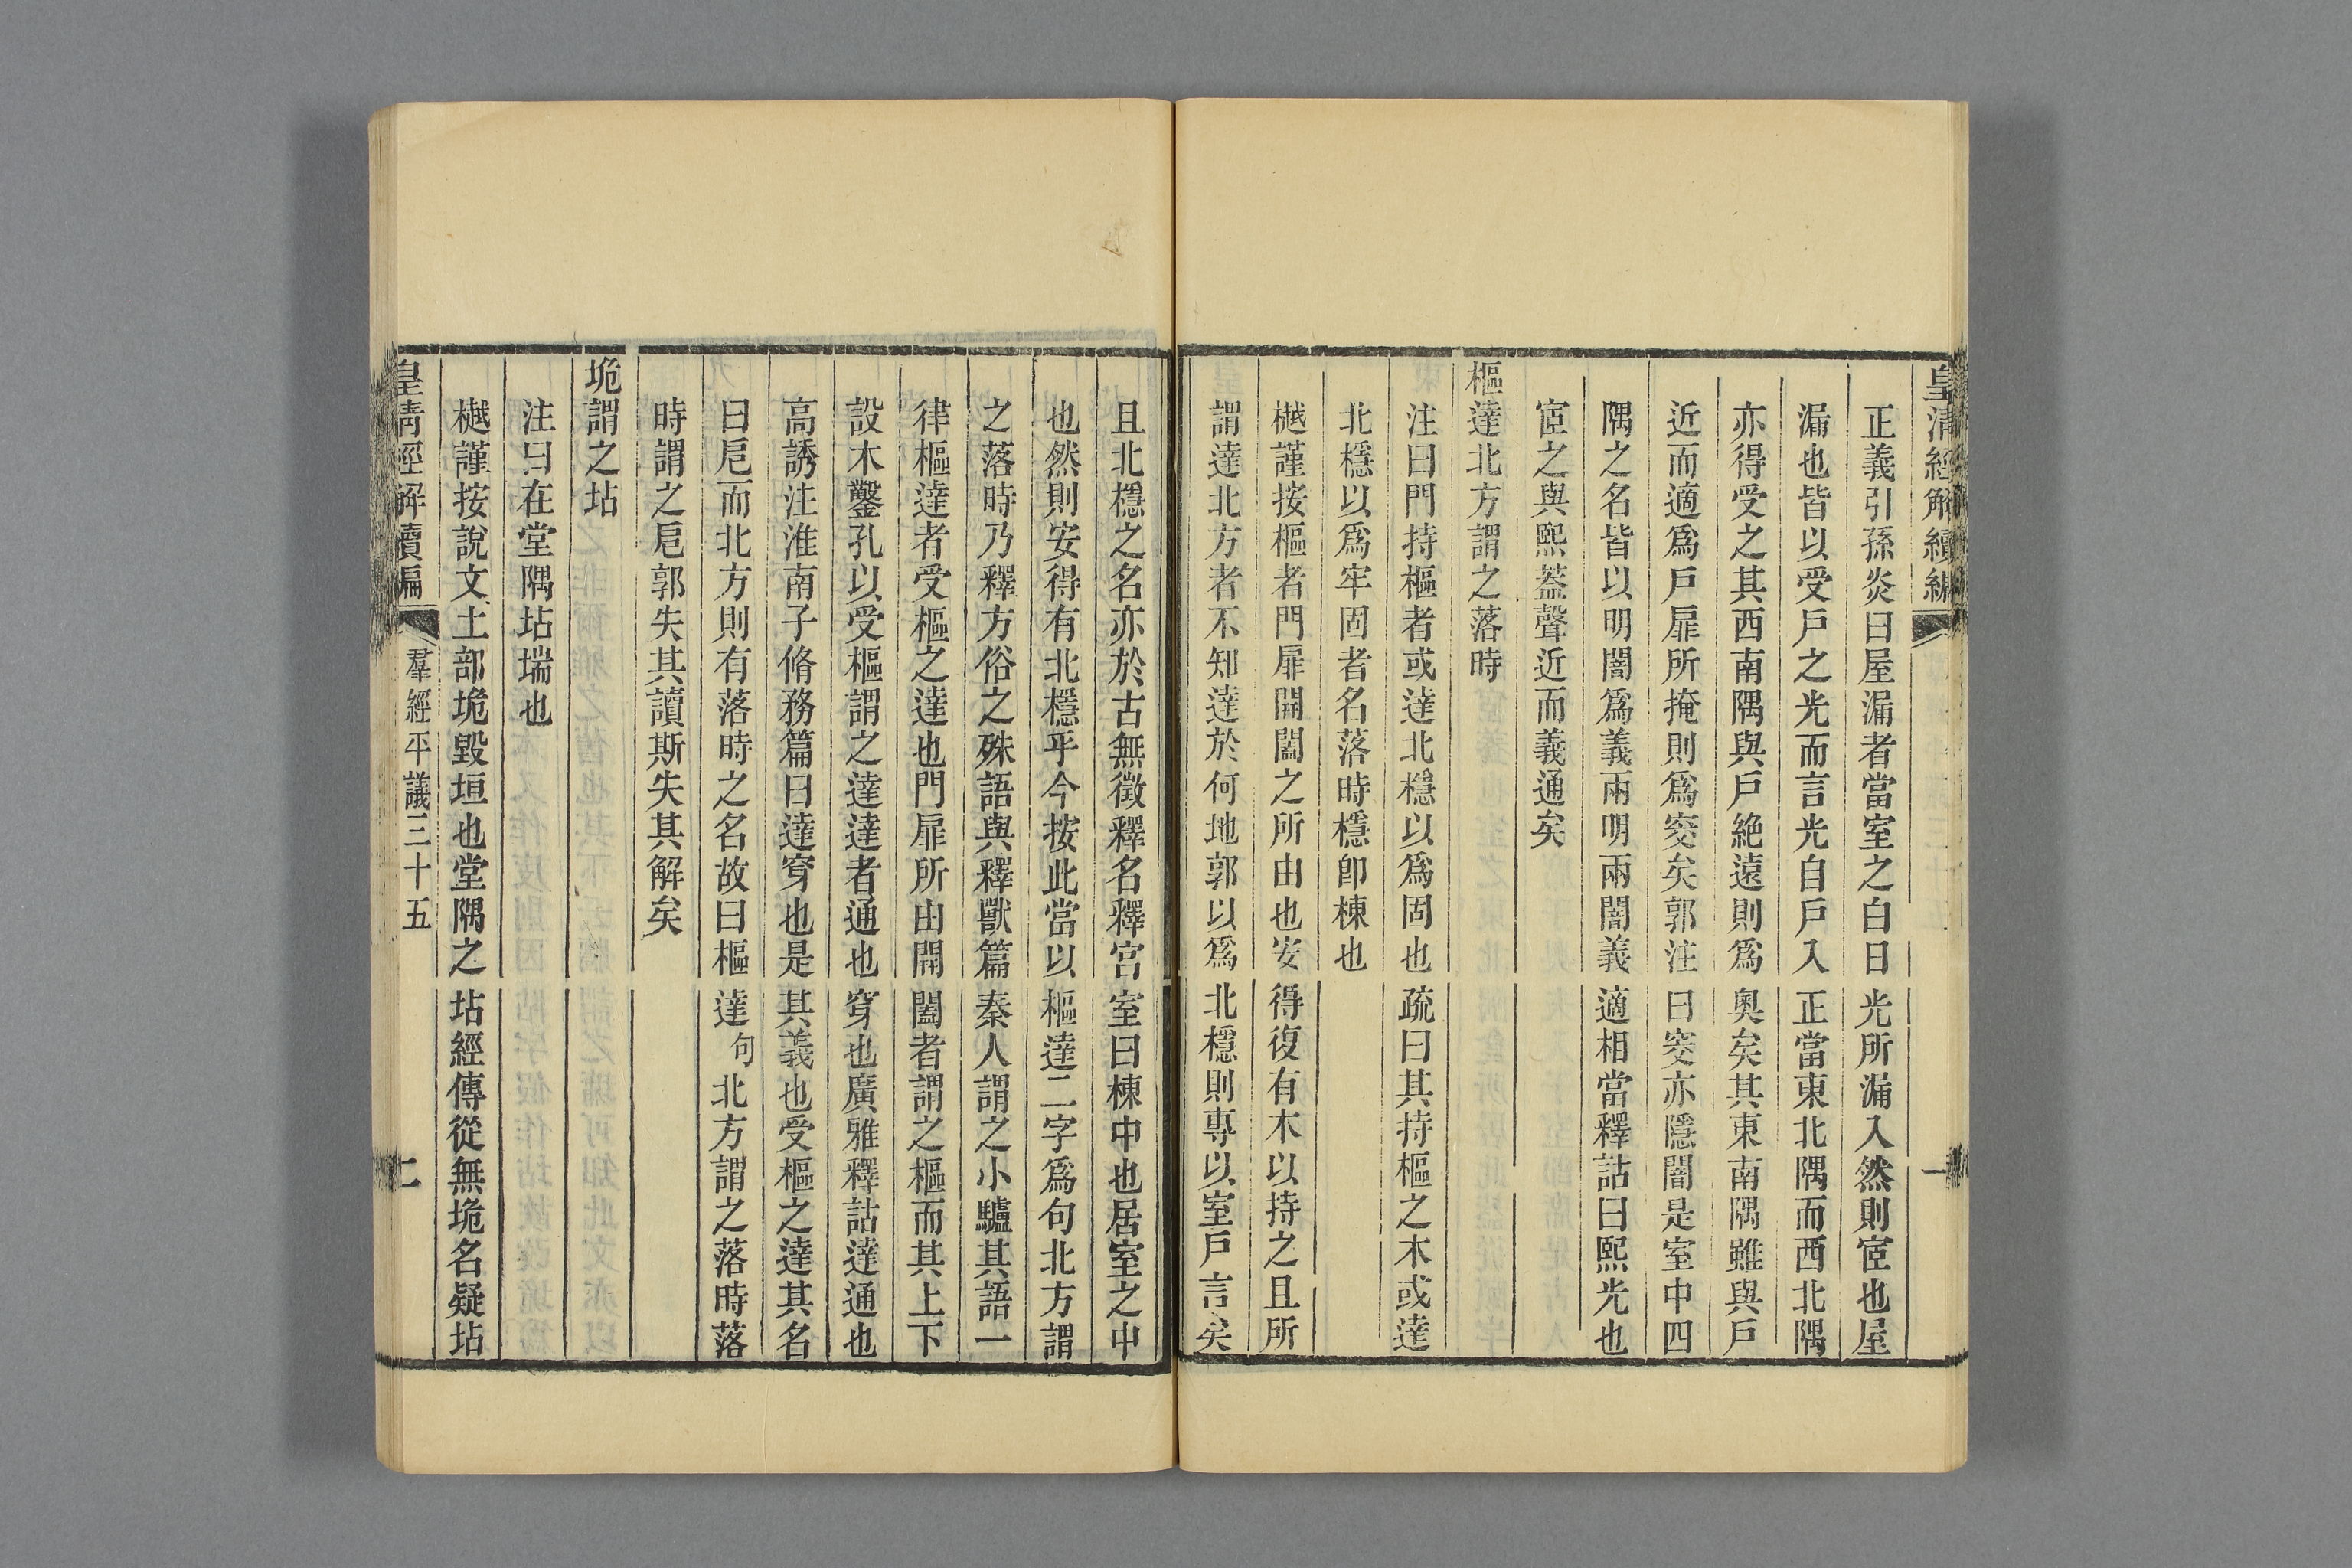 皇清經解續編
正義引孫炎曰屋漏者當室之白日光所漏入然則宧也屋
漏也皆以受戶之光而言光自戶入正當東北隅而西北隅
亦得受之其西南隅與戶絶遠則爲奧矣其東南隅雖與戶
近而適爲戶扉所掩則爲窔矣郭注曰窔亦隱闇是室中四
隅之名皆以明闇爲義兩明兩闇義適相當釋詁曰熙光也
宧之與熙葢聲近而義通矣
樞達北方謂之落時
注曰門持樞者或達北檼以爲固也疏曰其持樞之木或達
北檼以爲牢固者名落時檼卽棟也
樾謹按樞者門扉開闔之所由也安得復有木以持之且所
謂達北方者不知達於何地郭以爲北檼則專以室戶言矣
且北檼之名亦於古無徵釋名釋宮室曰棟中也居室之中
也然則安得有北檼乎今按此當以樞達二字爲句北方謂
之落時乃釋方俗之殊語與釋獸篇秦人謂之小驢其語一
律樞達者受樞之達也門扉所由開闔者謂之樞而其上下
設木鑿孔以受樞謂之達達者通也穿也廣雅釋詁達通也
高誘注淮南子脩務篇曰達穿也是其義也受樞之達其名
曰戹而北方則有落時之名故曰樞達句北方謂之落時落
時謂之戹郭失其讀斯失其解矣
垝謂之坫
注曰在堂隅坫㙐也
樾謹按說文土部垝毀垣也堂隅之坫經傳從無垝名疑坫
皇清經解續編
羣經平議三十五